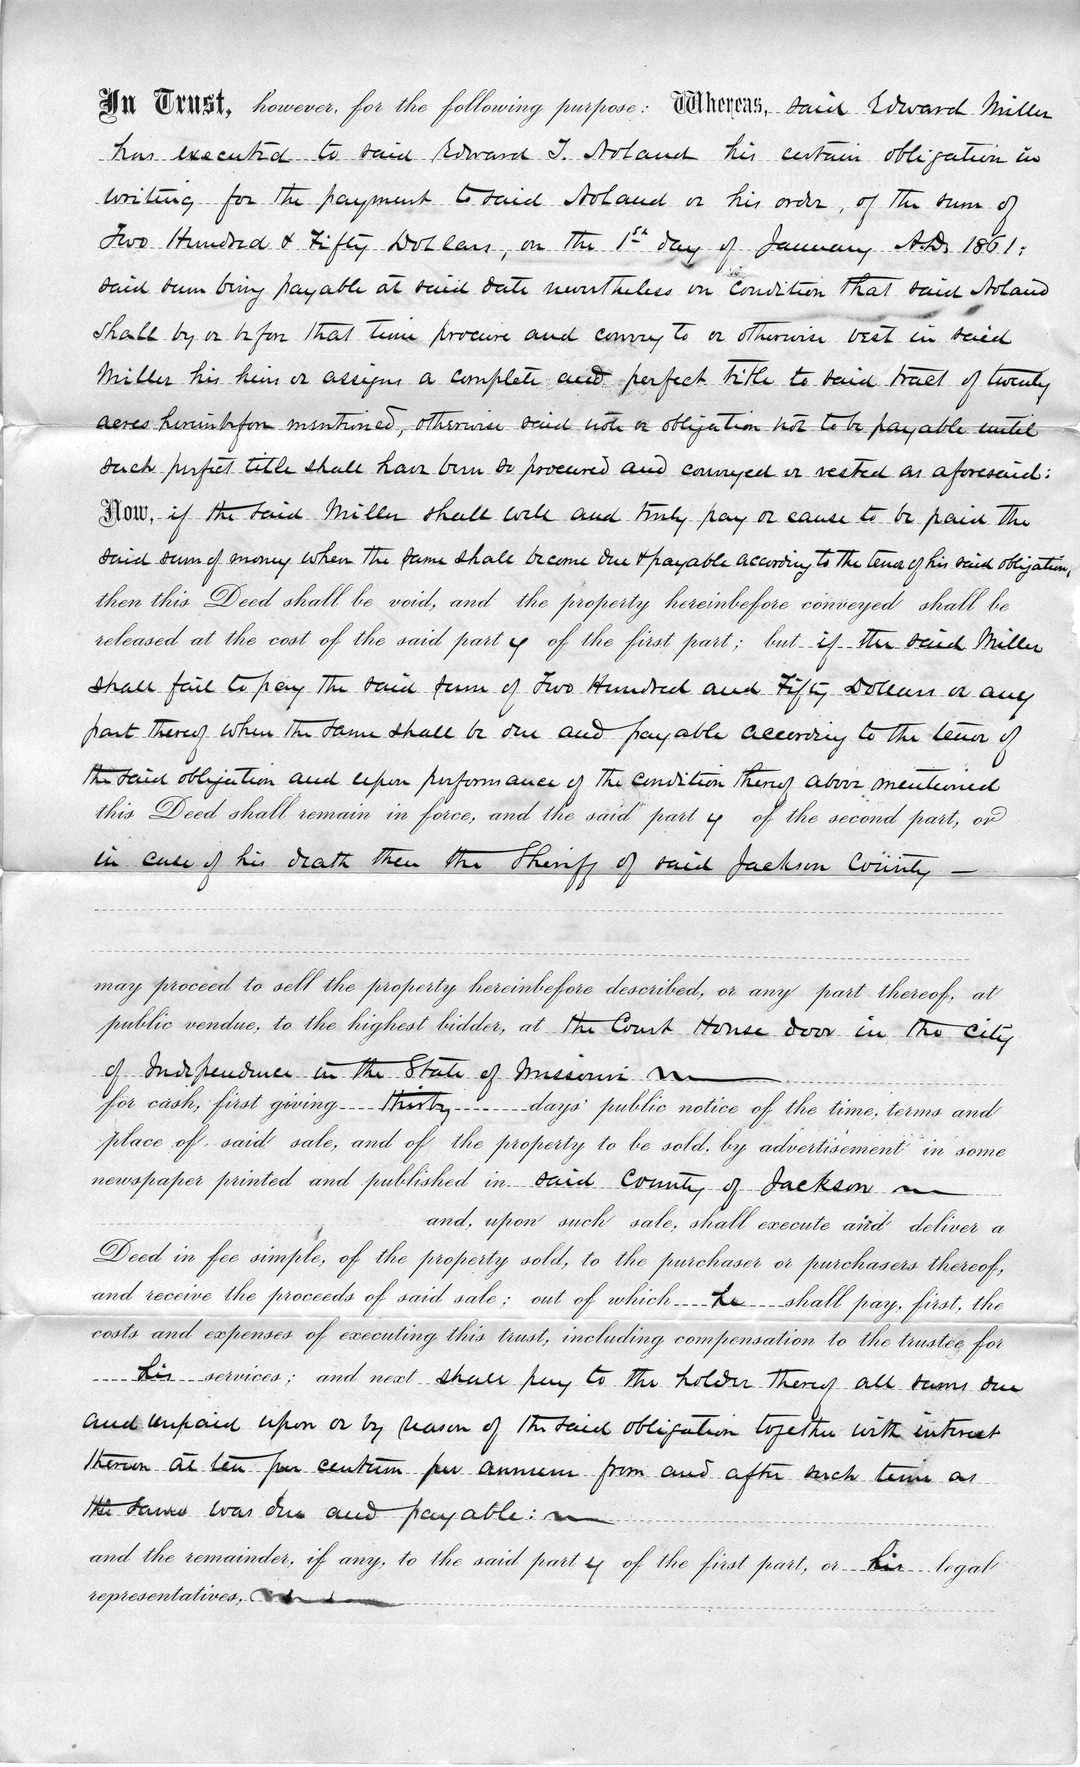 In Trust, however, for the following purpose: Whereas, said Edward Miller
has executed to said Edward T. Noland his certain obligation in
writing for the payment to said Noland or his order, of the sum of
Two Hundred & Fifty Dollars, on the 1st day of January A.D. 1861:
said sum being payable at said date nevertheless on condition that said Noland
shall by or before that time procure and convey to or otherwise vest in said
Miller his heirs or assigns a complete and perfect title to said tract of twenty
acres hereinbefore mentioned, otherwise said note or obligation not to be payable until
such perfect title shall have been so procured and conveyed or vested as aforesaid:
Now, if the said Miller shall well and truly pay or cause to be paid the
said sum of money when the same shall become due & payable according to the tenor of his said obligation,
then this Deed shall be void, and the property hereinbefore conveyed shall be
released at the cost of the said party of the first part; but if the said Miller
shall fail to pay the said sum of Two Hundred and Fifty Dollars or any
part thereof when the same shall be due and payable according to the tenor of
the said obligation and upon performance of the condition thereof above mentioned
this Deed shall remain in force, and the said party of the second part, or
in case of his death then the Sheriff of said Jackson County —
may proceed to sell the property hereinbefore described, or any part thereof, at
public vendue, to the highest bidder, at the Court House door in the City
of Independence in the State of Missouri
for cash, first giving thirty days' public notice of the time, terms and
place of said sale, and of the property to be sold, by advertisement in some
newspaper printed and published in said County of Jackson
and, upon such sale, shall execute and deliver a
Deed in fee simple, of the property sold, to the purchaser or purchasers thereof,
and receive the proceeds of said sale; out of which he shall pay, first, the
costs and expenses of executing this trust, including compensation to the trustee for
his services; and next shall pay to the holder thereof all sums due
and unpaid upon or by reason of the said obligation together with interest
thereon at ten per centum per annum from and after such time as
the same was due and payable:
and the remainder, if any, to the said party of the first part, or his legal
representatives,